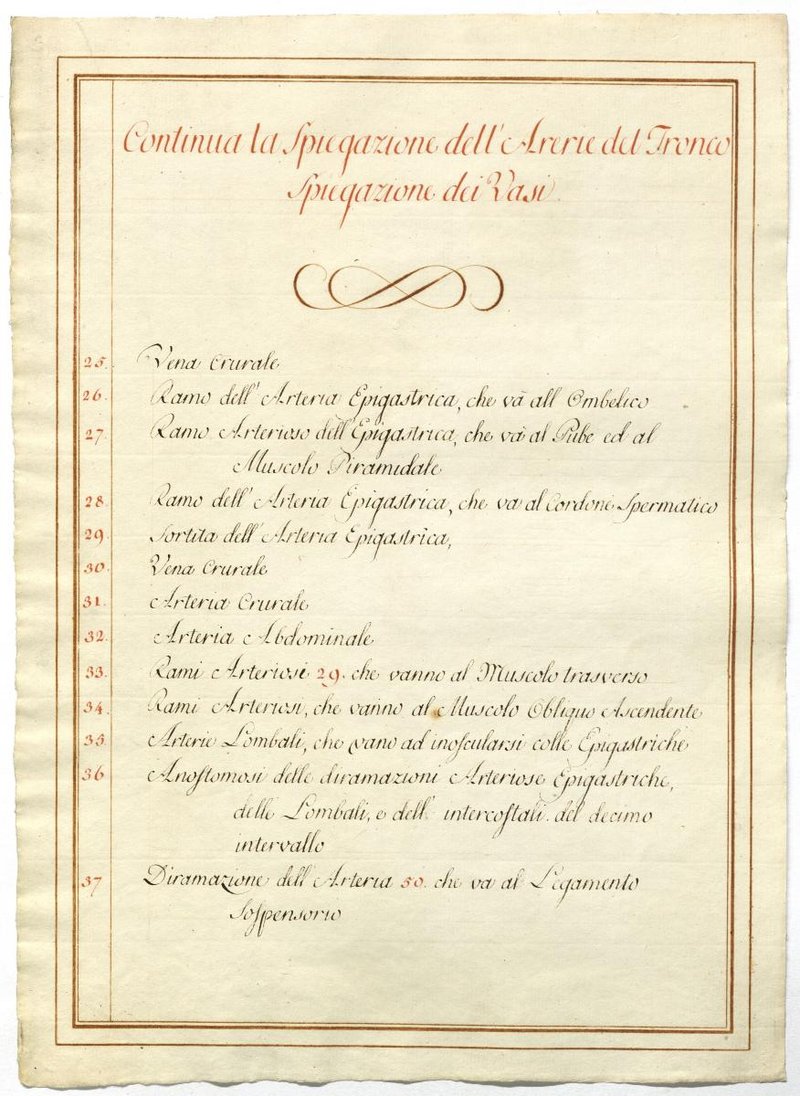 Continua la Spiegazione dell'Arerie del Tronco
Spiegazione dei Vasi.
25. Vena Crurale
26. Ramo dell'Arteria Epigastrica, che và all Ombelico
27. Ramo Arterioso dell'Epigastrica, che và al Pube ed al
Muscolo Piramidale
28. Ramo dell'Arteria Epigastrica, che va al Cordone Spermatico
29. Sortita dell'Arteria Epigastrica,
30. Vena Crurale
31. Arteria Crurale
32. Arteria Abdominale
33. Rami Arteriosi 29. che vanno al Muscolo trasverso
34. Rami Arteriosi, che vanno al Muscolo Obliquo Ascendente
35. Arterie Lombali, che vano ad inoscularsi colle Epigastriche
36 Anoſtomosi delle diramazioni Arteriose Epigastriche,
delle Lombali, e dell' intercoſtali. del decimo
intervallo
37 Diramazione dell'Arteria 50. che va al Legamento
Soſpensorio